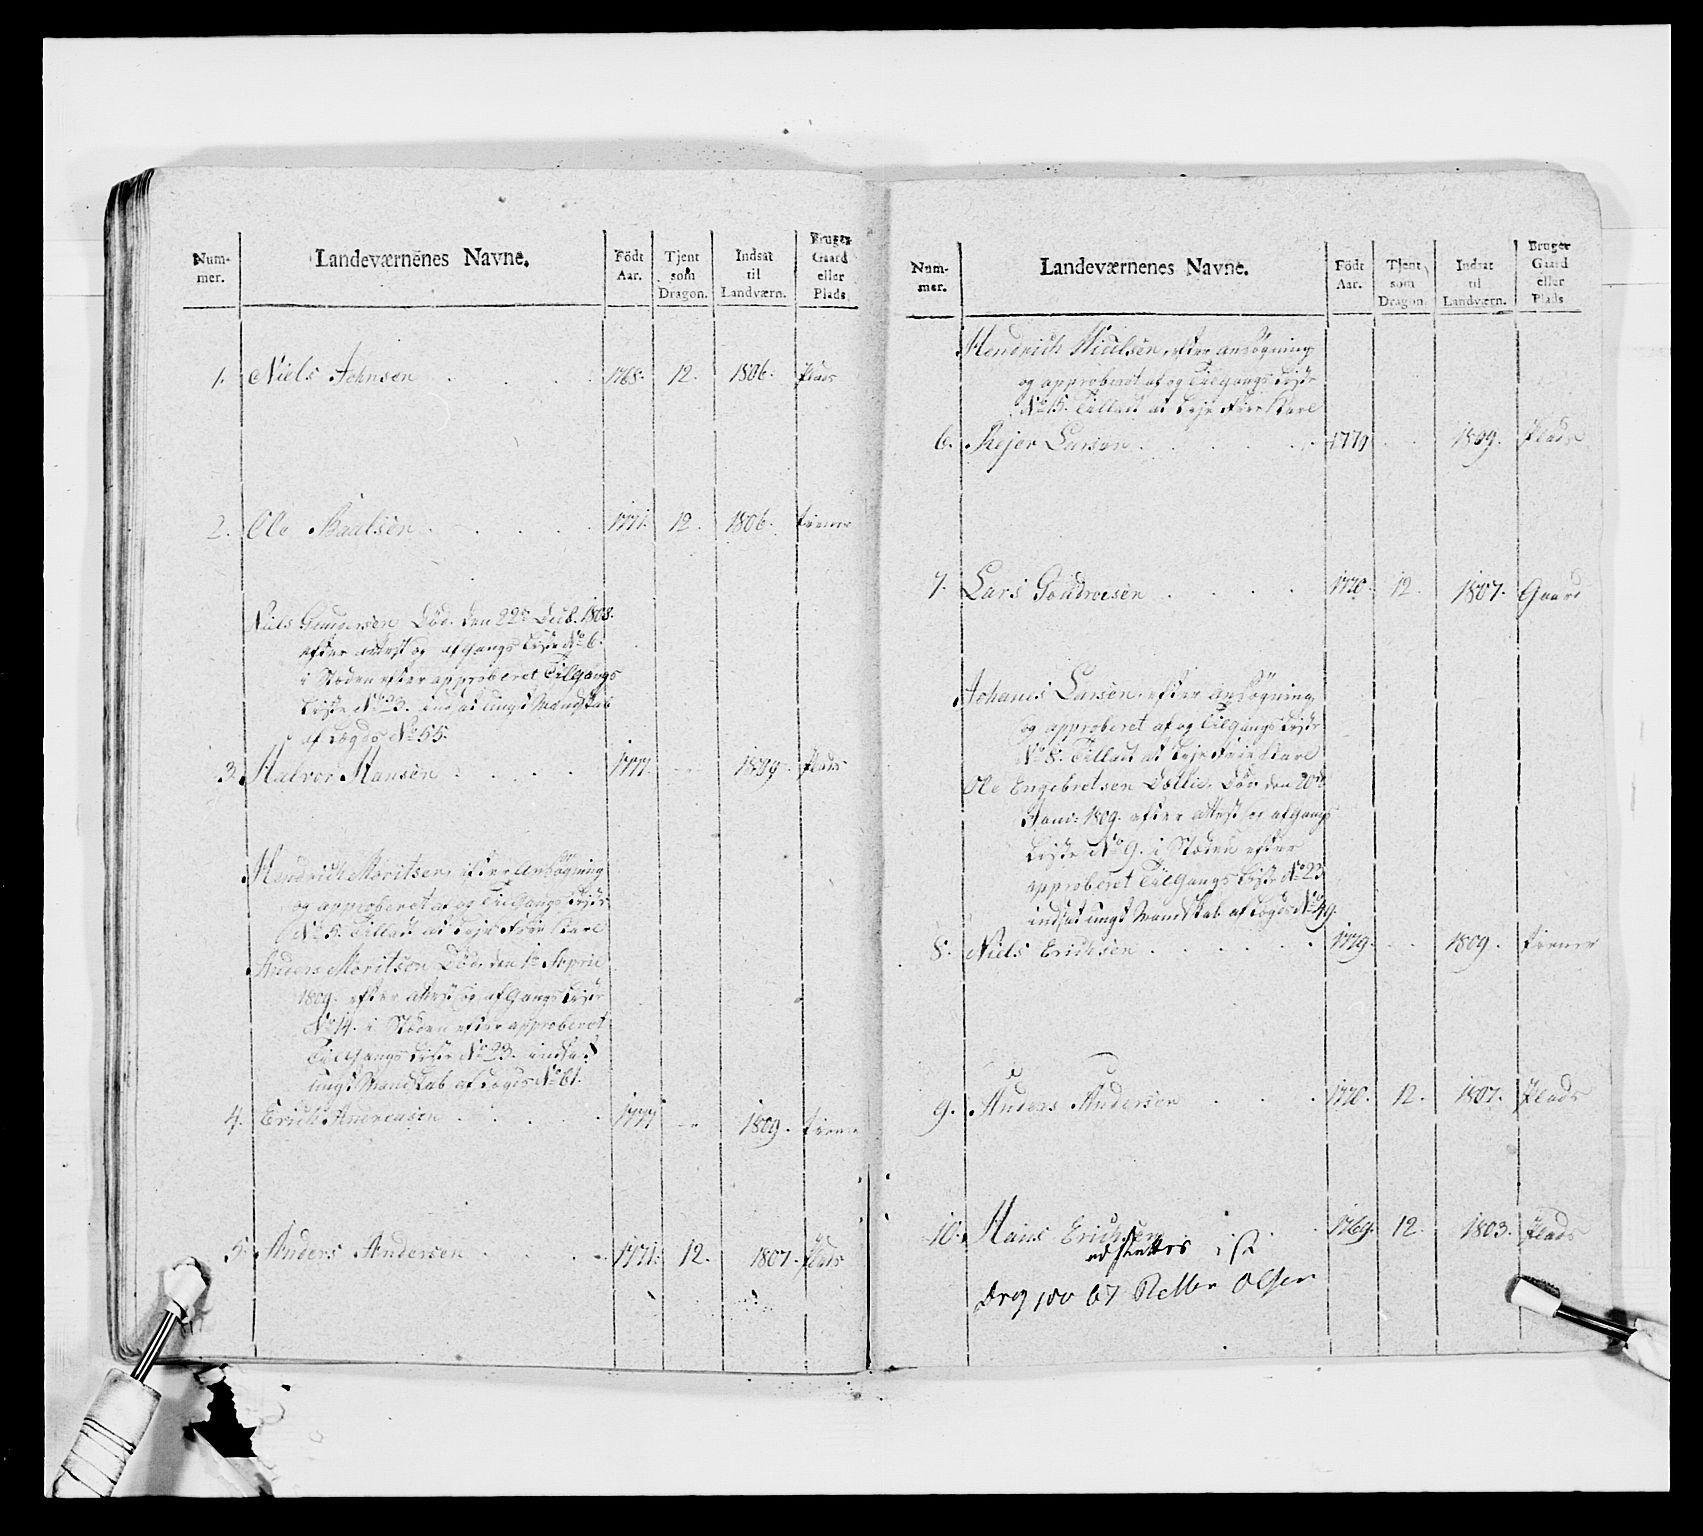 Num- mer. Landeværnenes Navne. Födt Aar. Tjent som Dragon. Indsat til Landværn. Bruger Gaard eller Plads.
1. Niels Johnsen 1768. 12. 1806. Plads
2. Ole Paulsen 1771. 12. 1806. tiener
Niels Gundersen Död den 22de Decb. 1808.
efter attest og afgangs Liste No 6.
i Stæden efter approberet Tilgangs
Liste No 23. indsat ungt Mandskab
af Lægds No 55.
3. Halvor Hansen 1777. 1809. Plads
Hendrich Moritsen, efter Ansögning
og approberet af og Tilgangs Liste
No 5. Tilladt at Leje Frie Karl
Anders Moritsen Död den 1te April
1809. efter attest og afgangs Liste
No 14. i Stæden efter approberet
Tilgangs Liste No 23. indsat
ungt Mandskab af Lægds No 61.
4. Erich Andreasen 1777 1809. tiener
5. Anders Andersen 1771. 12. 1807. Plads
Num- mer. Landeværnenes Navne. Födt Aar. Tjent som Dragon. Indsat til Landværn. Bruger Gaard eller Plads.
Hendrich Nielsen, efter ansögning
og approberet af og Tilgangs Liste
No 15. Tilladt at Leje Frie Karl
6. Rejer Larsen 1779 1809. Plads
7. Lars Gondroesen 1770. 12. 1807. Gaard
Johanes Larsen, efter Ansögning
og approberet af og Tilgangs Liste
No 8. Tilladt at Leje Frie Karl
Ole Engebretsen Dællie, Död den 20de
Janu: 1809. efter attest og afgangs
Liste No 9. i Stæden efter
approberet Tilgangs Liste No 23
indsat ungt Mandskab af Lægds No 49.
8. Niels Erichsen 1779. 1809. tiener
9. Anders Andersen 1770. 12. 1807. Plads
10. Hans Erichsen 1769. 12. 1803. Plads
udsættes i st
Drg no 67 Petter Olsen